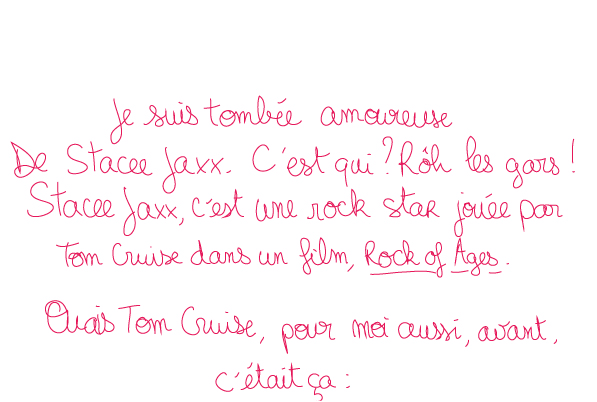 Je suis tombée amoureuse
De Stacee Jaxx. C'est qui ? Rôh les gars !
Stacee Jaxx, c'est une rock star jouée par
Tom Cruise dans un film, Rock of Ages.
Ouais Tom Cruise, pour moi aussi, avant,
c'était ça :